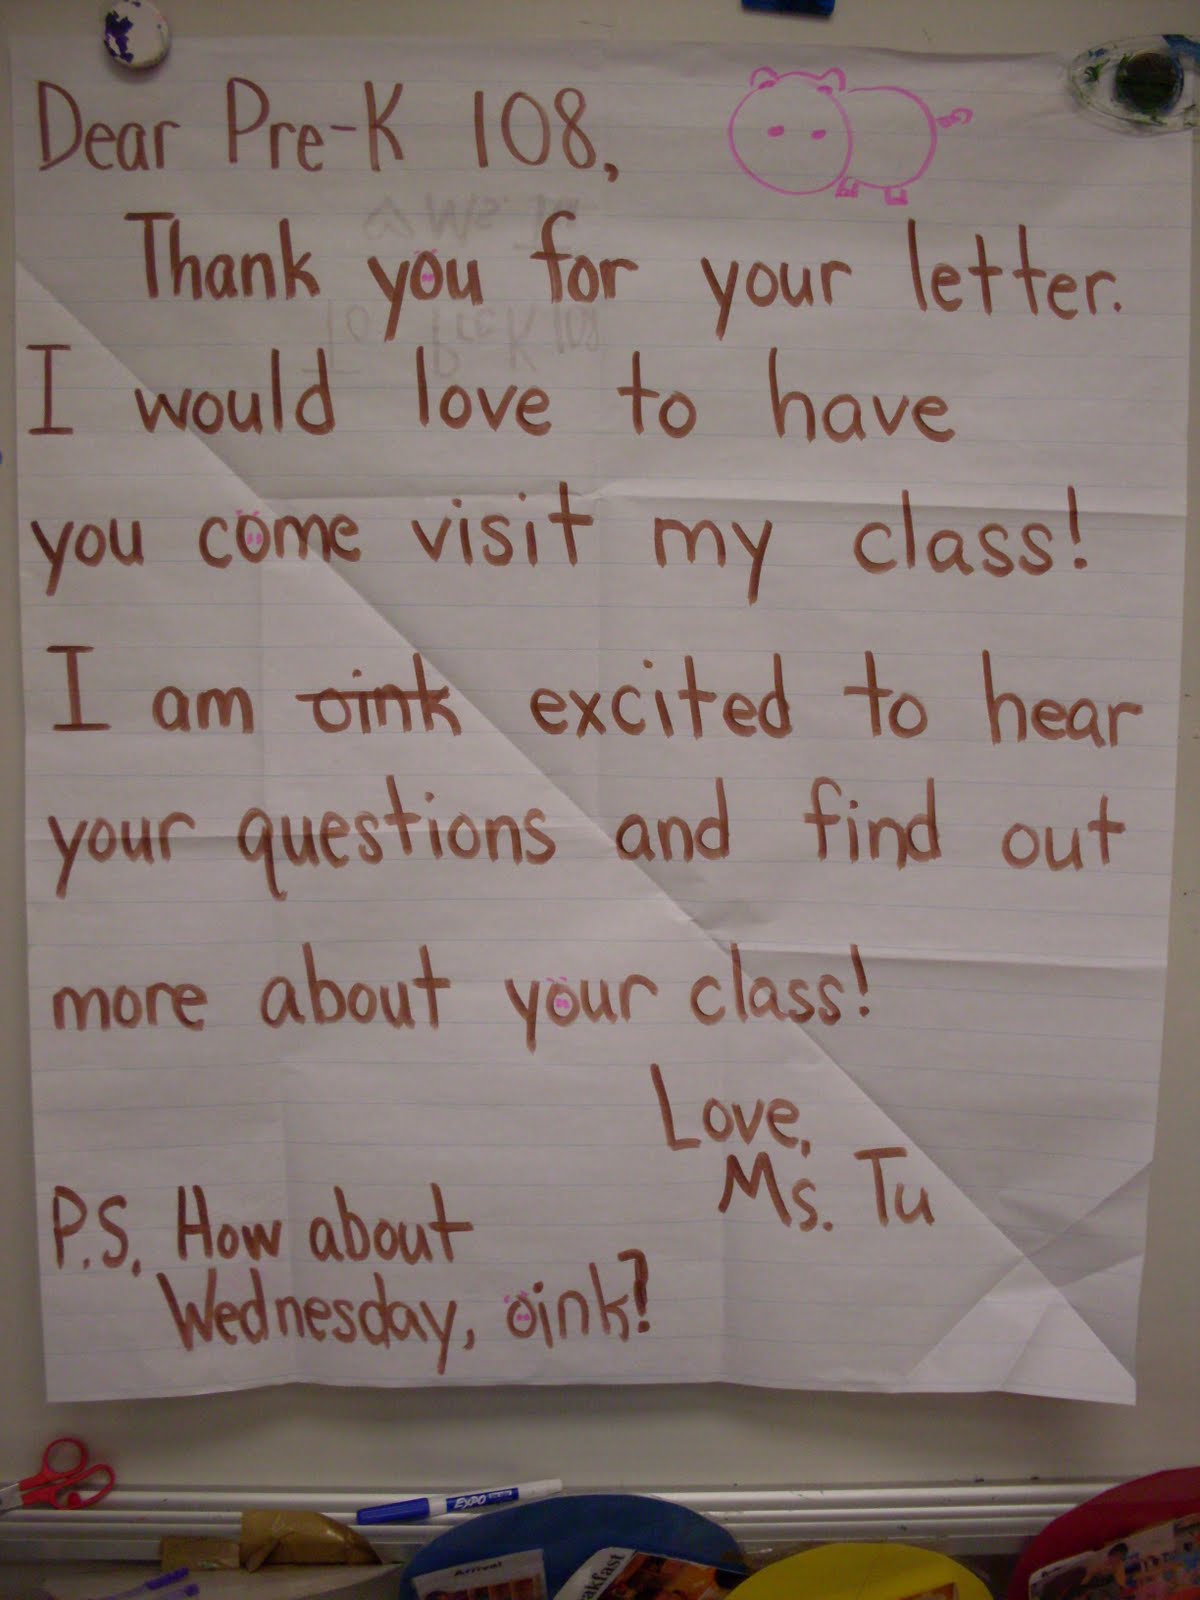 Dear Pre-K 108,
Thank you for your letter.
I would love to have
you come visit my class!
I am oink excited to hear
your questions and find out
more about your class!
Love,
Ms. Tu
P.S. How about
Wednesday, oink?
EXPO
Arrival
akfast